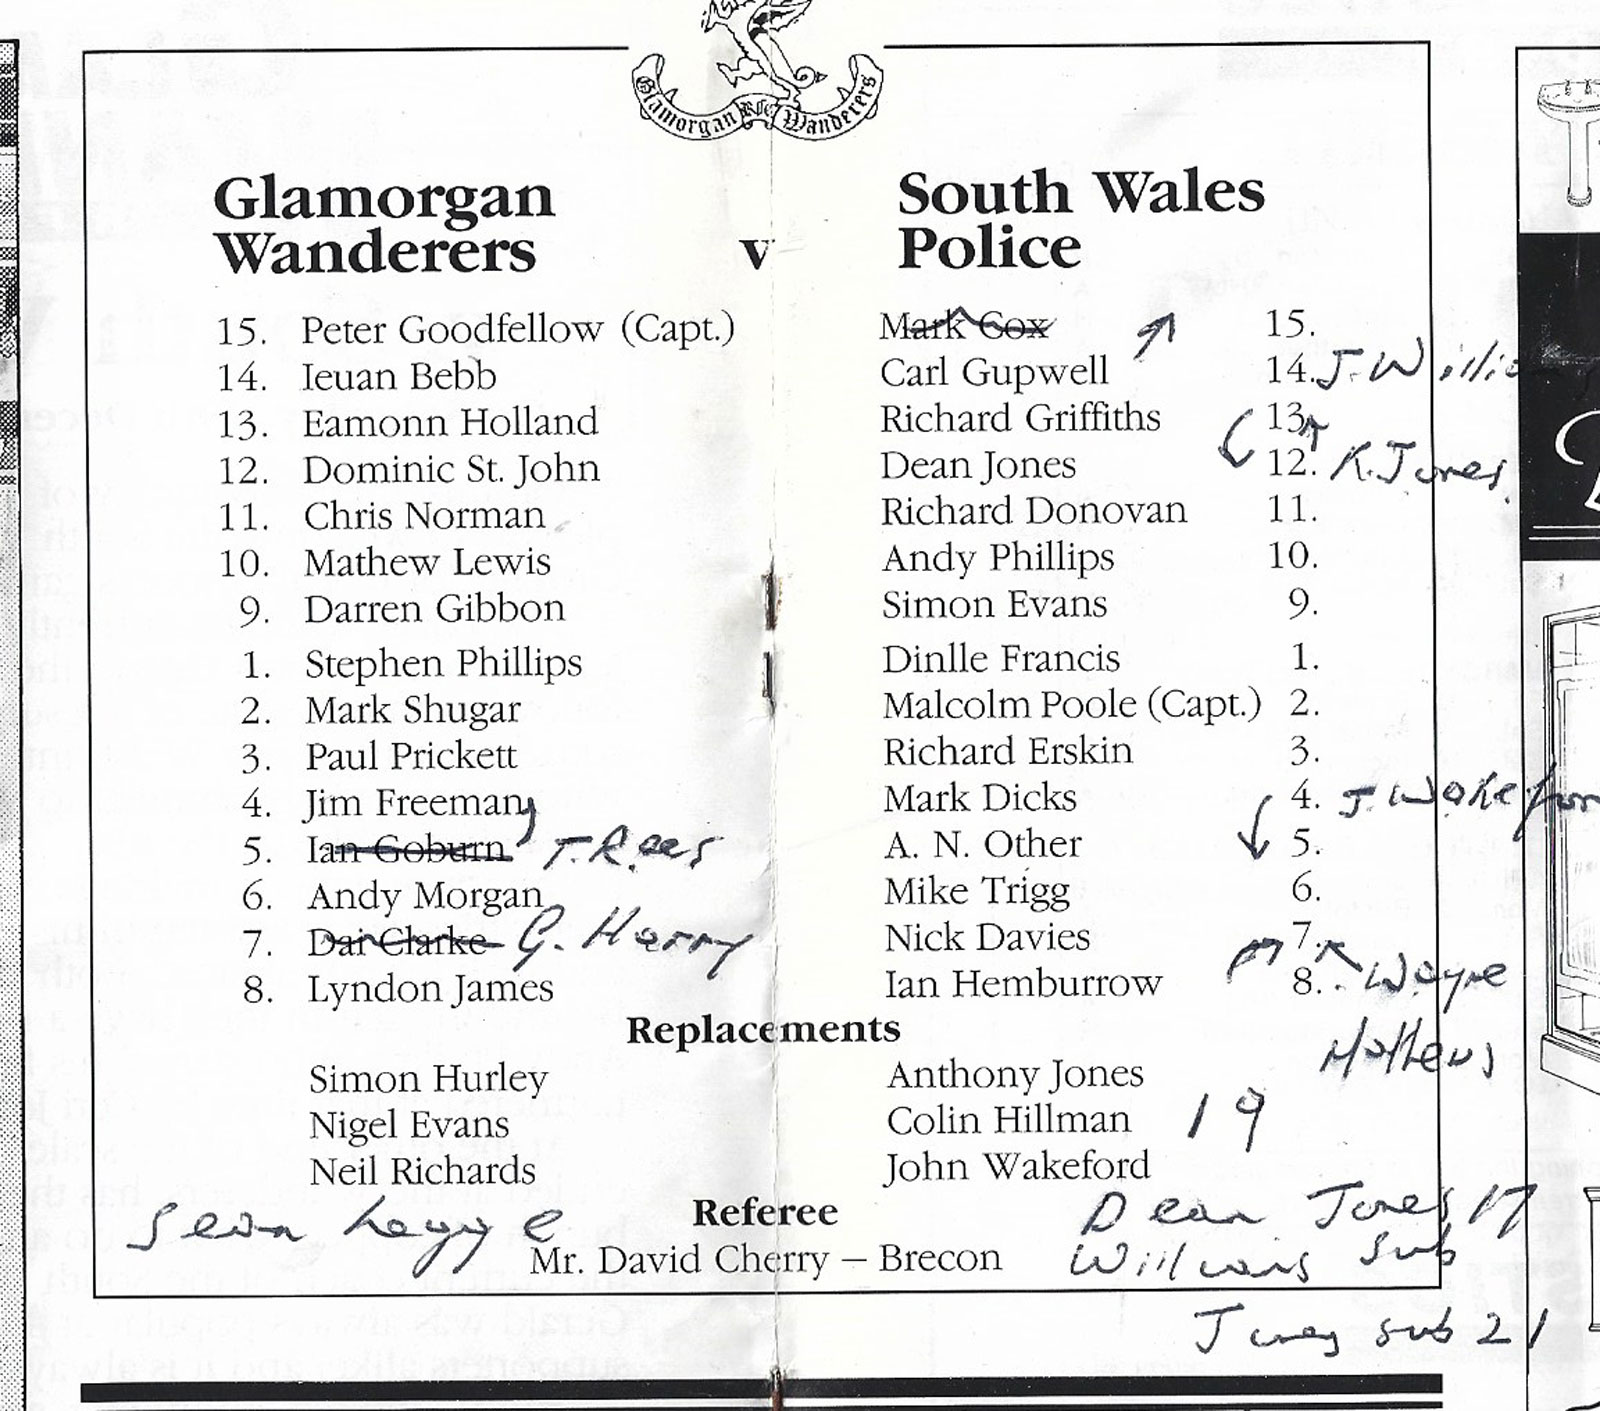 Glamorgan Rfc Wanderers
Glamorgan Wanderers v South Wales Police
15. Peter Goodfellow (Capt.) Mark Cox 15.
14. Ieuan Bebb Carl Gupwell 14. J. Williams
13. Eamonn Holland Richard Griffiths 13.
12. Dominic St. John Dean Jones 12. K. Jones
11. Chris Norman Richard Donovan 11.
10. Mathew Lewis Andy Phillips 10.
9. Darren Gibbon Simon Evans 9.
1. Stephen Phillips Dinlle Francis 1.
2. Mark Shugar Malcolm Poole (Capt.) 2.
3. Paul Prickett Richard Erskin 3.
4. Jim Freeman Mark Dicks 4. J. Wakefor
5. Ian Goburn T. Rees A. N. Other 5.
6. Andy Morgan Mike Trigg 6.
7. Dai Clarke G. Harry Nick Davies 7.
8. Lyndon James Ian Hemburrow 8. Wayne
Mathews
Replacements
Simon Hurley Anthony Jones
Nigel Evans Colin Hillman 19
Neil Richards John Wakeford
Sean Legge Referee Dean Jones 17
Mr. David Cherry – Brecon Williams sub
Jones sub 21